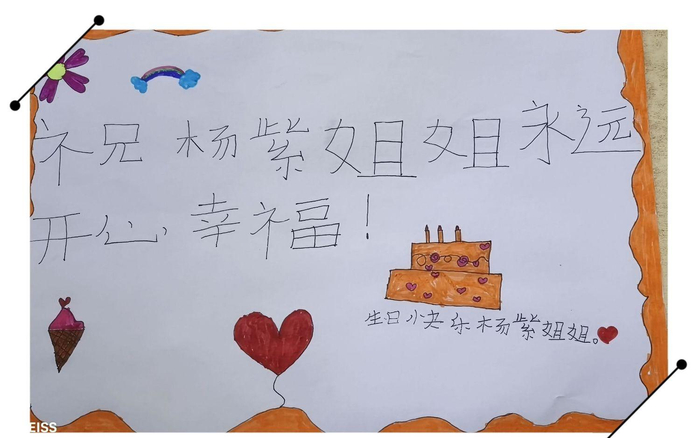 祝杨紫姐姐永远
开心,幸福!
生日快乐杨紫姐姐。
EISS